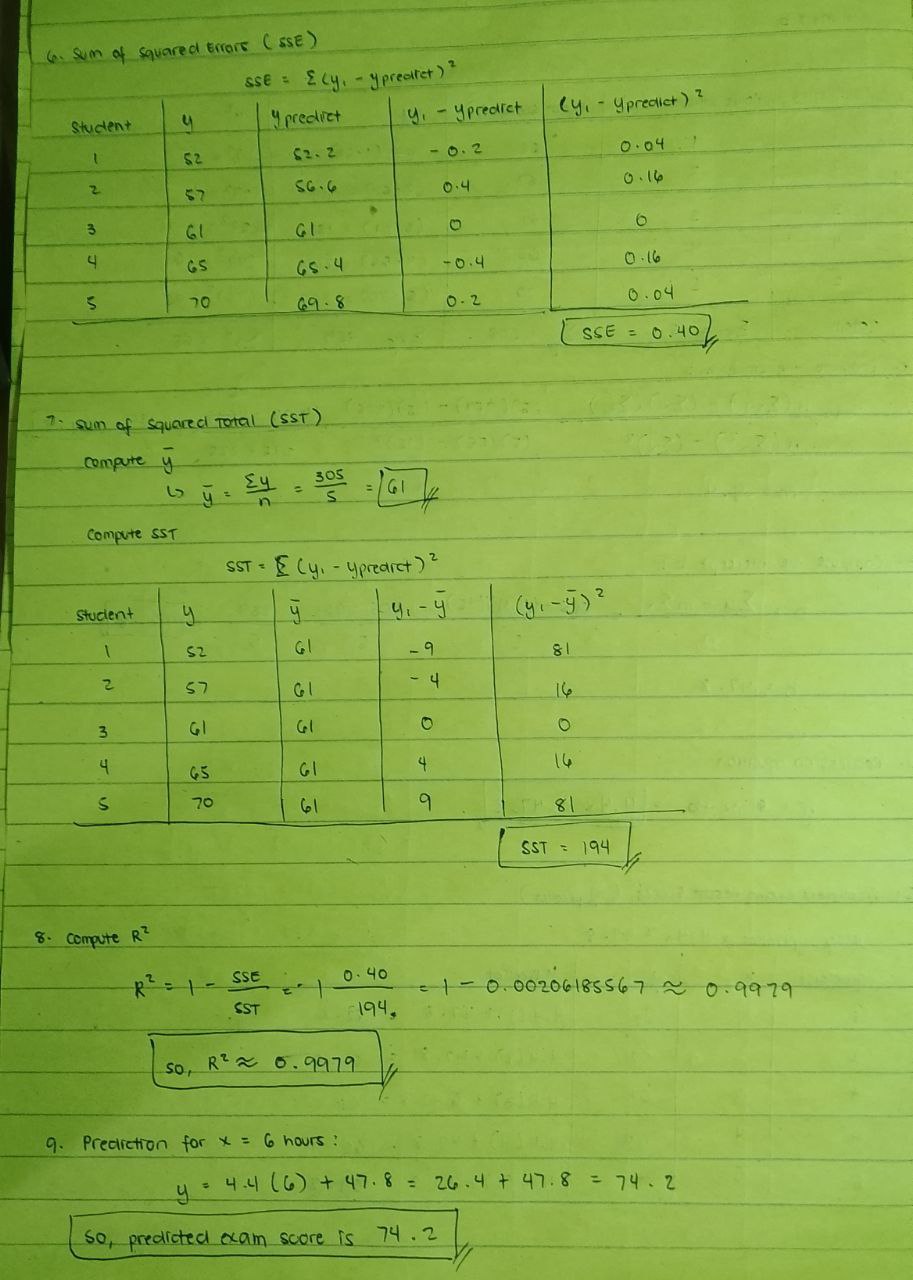 6. Sum of Squared Errors (SSE)
SSE = Σ(y₁ - ypredict)²
Student y ypredict y₁ - ypredict (y₁ - ypredict)²
1 52 52.2 -0.2 0.04
2 57 56.6 0.4 0.16
3 61 61 0 0
4 65 65.4 -0.4 0.16
5 70 69.8 0.2 0.04
SSE = 0.40
7. Sum of Squared Total (SST)
Compute ȳ
↳ ȳ = Σy/n = 305/5 = 61
Compute SST
SST = Σ(y₁ - ypredict)²
Student y ȳ y₁ - ȳ (y₁ - ȳ)²
1 52 61 -9 81
2 57 61 -4 16
3 61 61 0 0
4 65 61 4 16
5 70 61 9 81
SST = 194
8. Compute R²
R² = 1 - SSE/SST = - 1 0.40/194 = 1 - 0.00206185567 ≈ 0.9979
So, R² ≈ 0.9979
9. Prediction for x = 6 hours:
y = 4.4(6) + 47.8 = 26.4 + 47.8 = 74.2
So, predicted exam score is 74.2